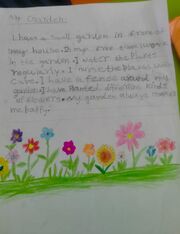 My Garden:
I have a small garden in front of
my house. 
in the garden. I water the plants
regularly. I nurse the plants with
care. I have a fence around my
garden. I have planted different kinds
of flowers. my garden always makes
me happy.